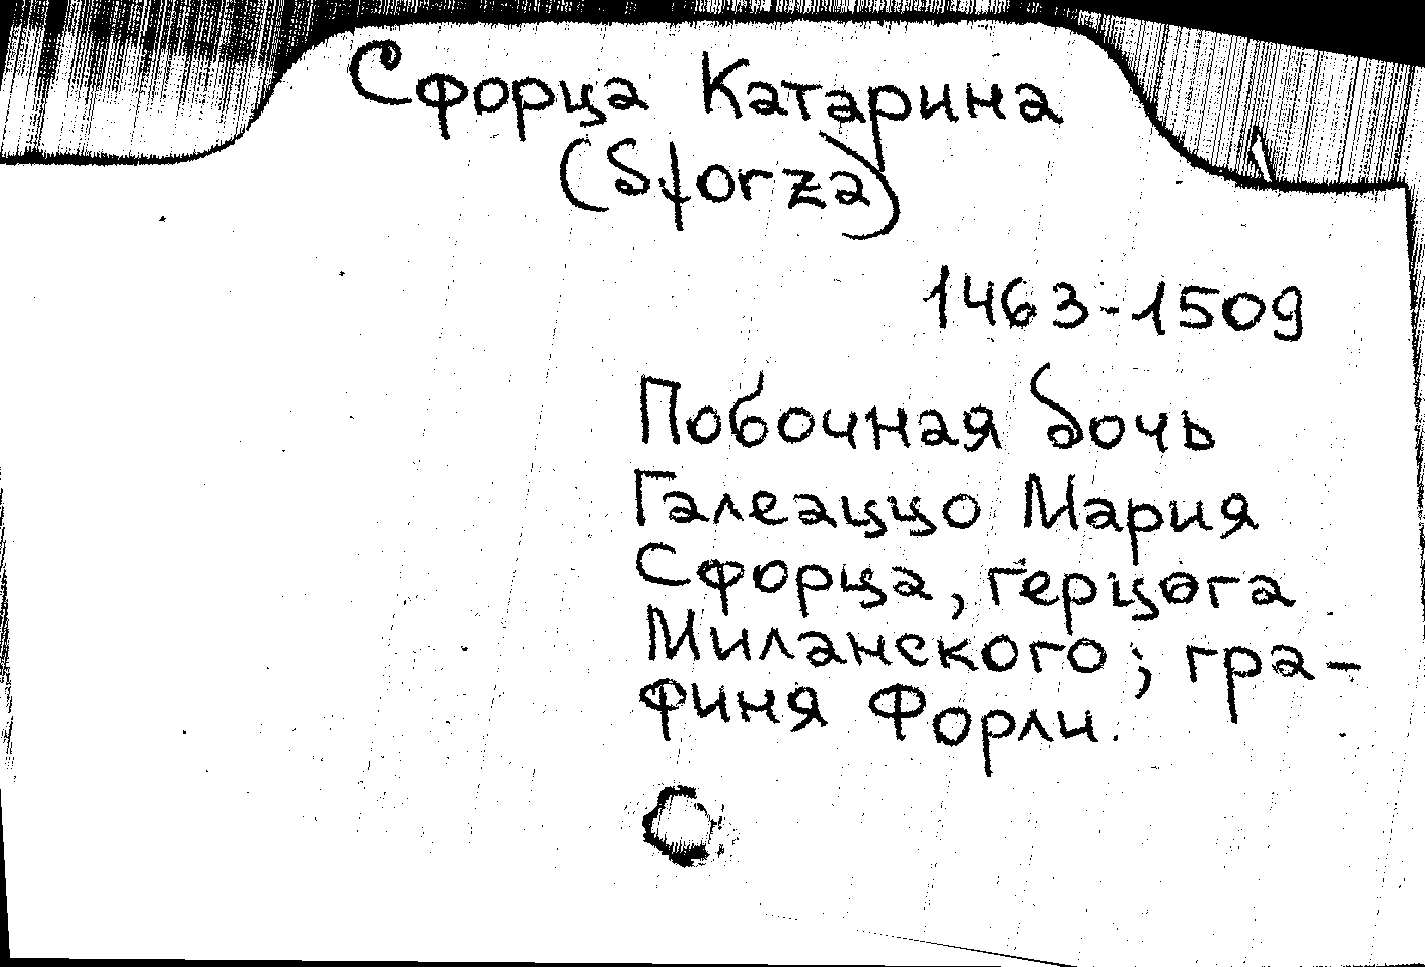 Сфорца Катарина
(Sforza)
1463-1509
Побочная дочь
Галеаццо Мария
Сфорца, герцога
Миланского; гра-
финя Форли.